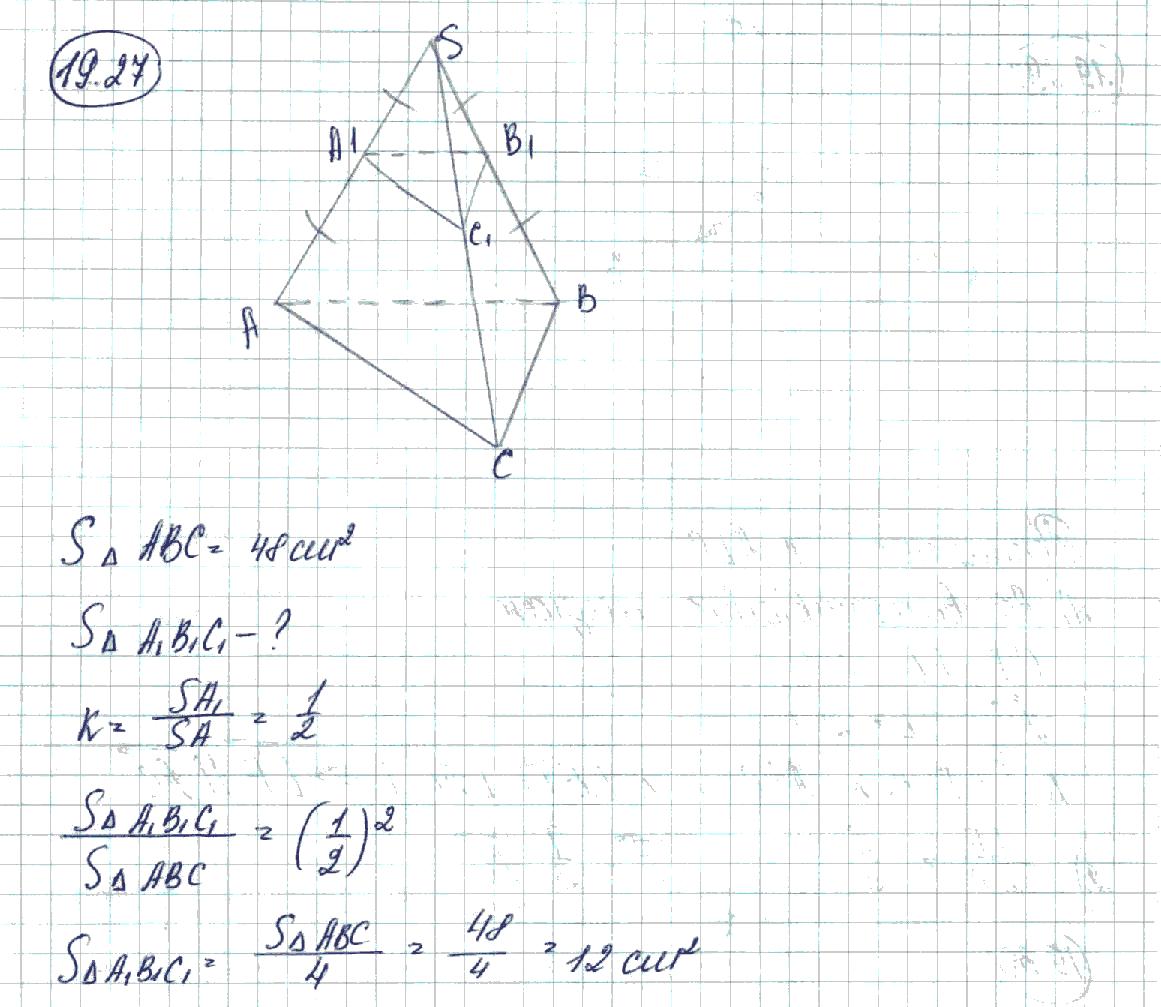 19.27
S
A1 B₁
C₁
A B
C
S△ ABC = 48 см²
S△ A₁B₁C₁ – ?
K = SA₁/SA = 1/2
S△ A₁B₁C₁ / S△ ABC = (1/2)²
S△ A₁B₁C₁ = S△ ABC / 4 = 48/4 = 12 см²